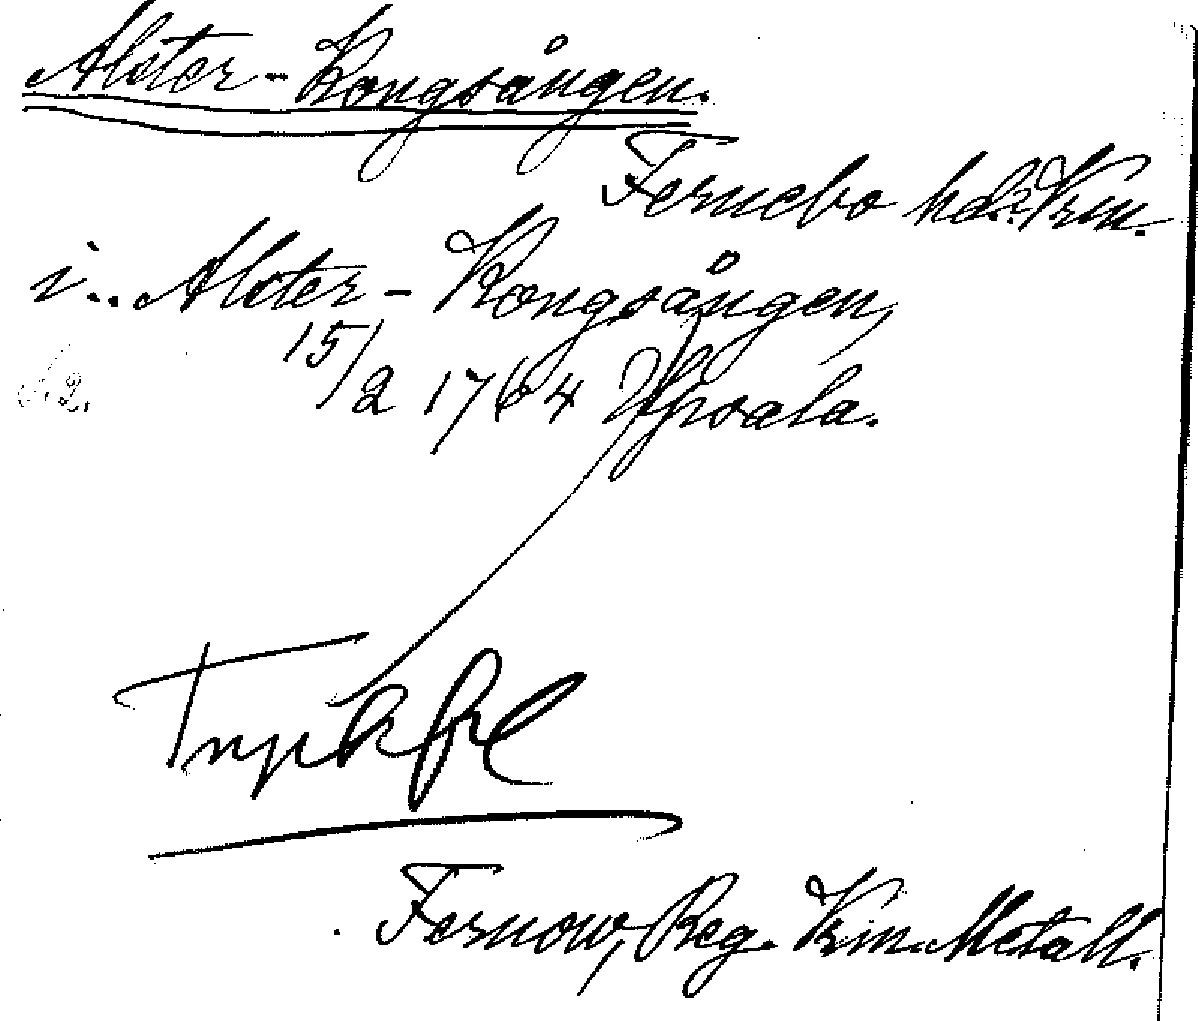 Alster-Kongsången.
Fernebo hd. Vrm.
i.. Alster-Kongsången,
15/2 1764 Upsala.
Fernow, Reg. Vrm. Metall.